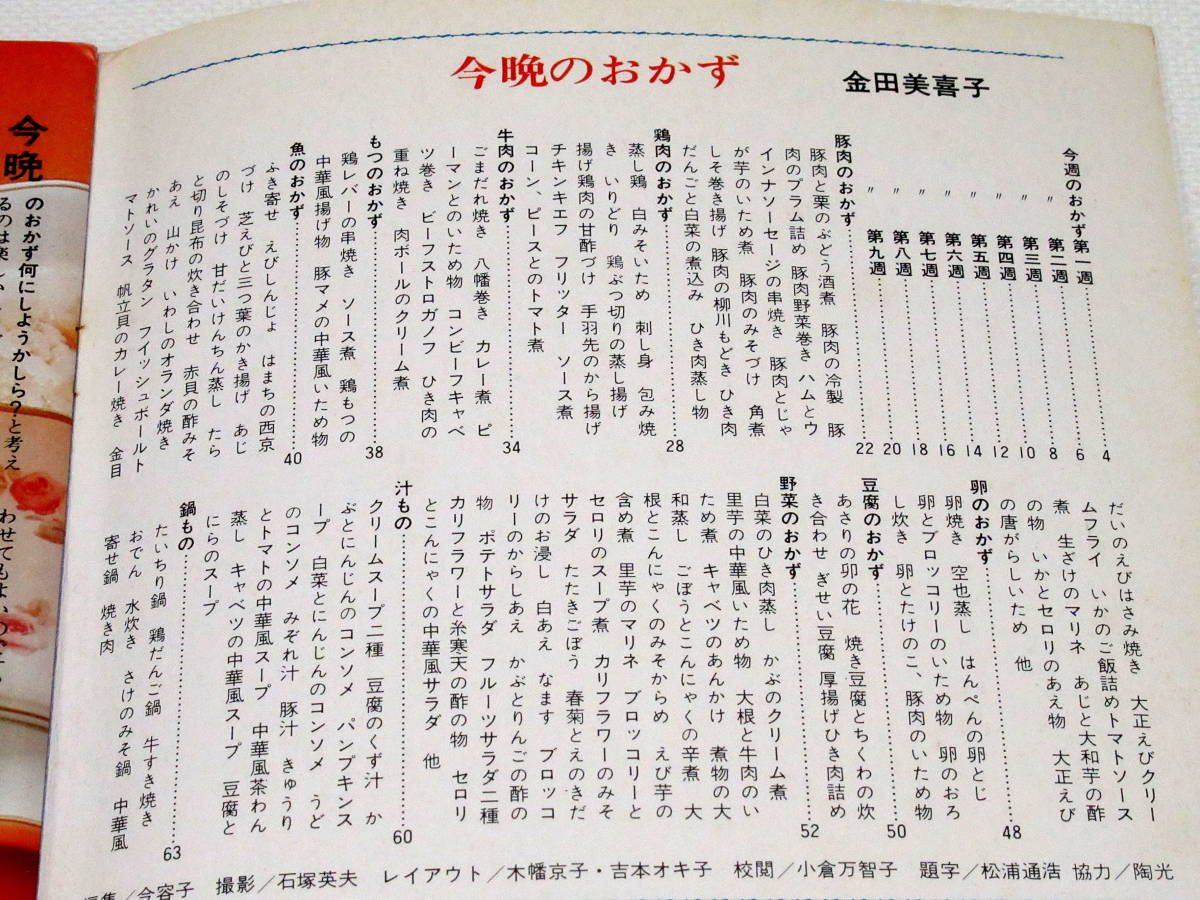 今晩のおかず
金田美喜子
今週のおかず第一週……4
〃 第二週……6
〃 第三週……8
〃 第四週……10
〃 第五週……12
〃 第六週……14
〃 第七週……16
〃 第八週……18
〃 第九週……20
豚肉のおかず……22
豚肉と栗のぶどう酒煮 豚肉の冷製 豚
肉のプラム詰め 豚肉野菜巻き ハムとウ
インナソーセージの串焼き 豚肉とじゃ
が芋のいため煮 豚肉のみそづけ 角煮
しそ巻き揚げ 豚肉の柳川もどき ひき肉
だんごと白菜の煮込み ひき肉蒸し物
鶏肉のおかず……28
蒸し鶏 白みそいため 刺し身 包み焼
き いりどり 鶏ぶつ切りの蒸し揚げ
揚げ鶏肉の甘酢づけ 手羽先のから揚げ
チキンキエフ フリッター ソース煮
コーン、ピースとのトマト煮
牛肉のおかず……34
ごまだれ焼き 八幡巻き カレー煮 ピ
ーマンとのいため物 コンビーフキャベ
ツ巻き ビーフストロガノフ ひき肉の
重ね焼き 肉ボールのクリーム煮
もつのおかず……38
鶏レバーの串焼き ソース煮 鶏もつの
中華風揚げ物 豚マメの中華風いため物
魚のおかず……40
ふき寄せ えびしんじょ はまちの西京
づけ 芝えびと三つ葉のかき揚げ あじ
のしそづけ 甘だいけんちん蒸し たら
と切り昆布の炊き合わせ 赤貝の酢みそ
あえ 山かけ いわしのオランダ焼き
かれいのグラタン フイッシュボールト
マトソース 帆立貝のカレー焼き 金目
だいのえびはさみ焼き 大正えびクリー
ムフライ いかのご飯詰めトマトソース
煮 生ざけのマリネ あじと大和芋の酢
の物 いかとセロリのあえ物 大正えび
の唐がらしいため 他
卵のおかず……48
卵焼き 空也蒸し はんぺんの卵とじ
卵とブロッコリーのいため物 卵のおろ
し炊き 卵とたけのこ、豚肉のいため物
豆腐のおかず……50
あさりの卯の花 焼き豆腐とちくわの炊
き合わせ ぎせい豆腐 厚揚げひき肉詰め
野菜のおかず……52
白菜のひき肉蒸し かぶのクリーム煮
里芋の中華風いため物 大根と牛肉のい
ため煮 キャベツのあんかけ 煮物の大
和蒸し ごぼうとこんにゃくの辛煮 大
根とこんにゃくのみそからめ えび芋の
含め煮 里芋のマリネ ブロッコリーと
セロリのスープ煮 カリフラワーのみそ
サラダ たたきごぼう 春菊とえのきだ
けのお浸し 白あえ なます ブロッコ
リーのからしあえ かぶとりんごの酢の
物 ポテトサラダ フルーツサラダ二種
カリフラワーと糸寒天の酢の物 セロリ
とこんにゃくの中華風サラダ 他
汁もの……60
クリームスープ二種 豆腐のくず汁 か
ぶとにんじんのコンソメ パンプキンス
ープ 白菜とにんじんのコンソメ うど
のコンソメ みぞれ汁 豚汁 きゅうり
とトマトの中華風スープ 中華風茶わん
蒸し キャベツの中華風スープ 豆腐と
にらのスープ
鍋もの……63
たいちり鍋 鶏だんご鍋 牛すき焼き
おでん 水炊き さけのみそ鍋 中華風
寄せ鍋 焼き肉
編集/今容子 撮影/石塚英夫 レイアウト/木幡京子・吉本オキ子 校閲/小倉万智子 題字/松浦通浩 協力/陶光
今晩
のおかず何にしようかしら?と考え
るのは楽しい
わせても